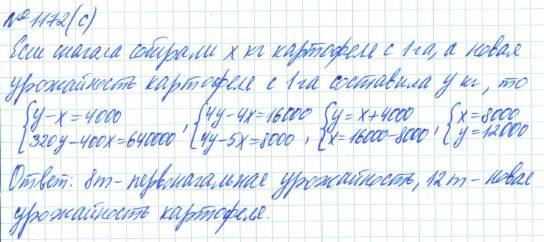 № 1172(с)
Если сначала собирали x кг картофеля с 1 га, а новая
урожайность картофеля с 1 га составила y кг, то
{y-x=4000 {4y-4x=16000 {y=x+4000 {x=8000
320y-400x=640000, 4y-5x=8000, x=16000-8000, y=12000
Ответ: 8т - первоначальная урожайность, 12т - новая
урожайность картофеля.